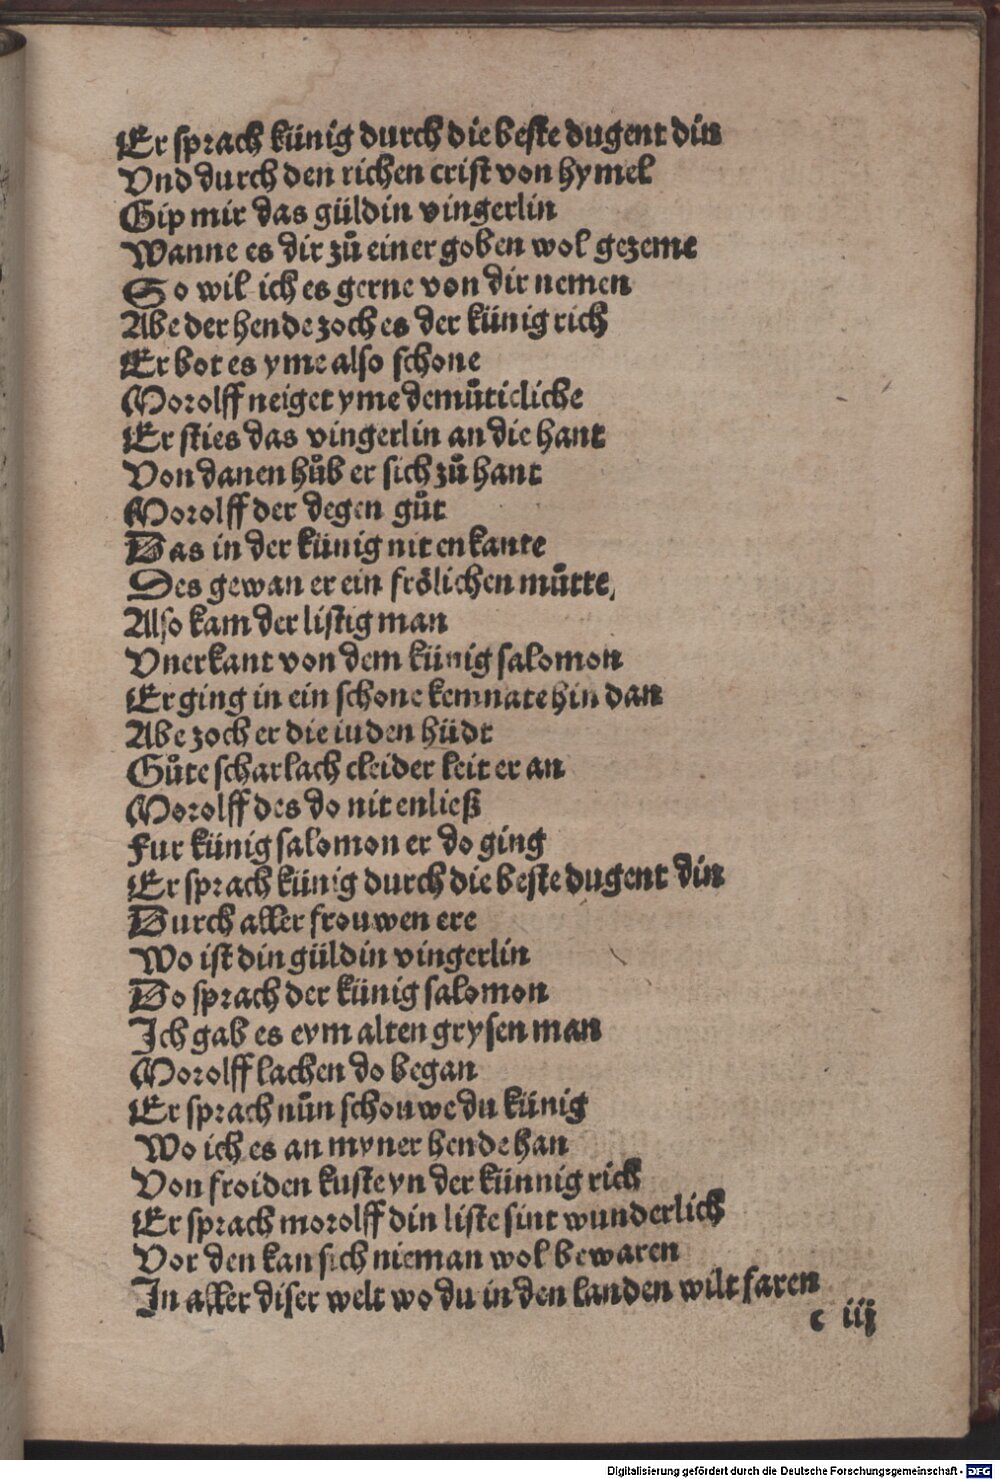 Er sprach künig durch die beste dugent din
Vnd durch den richen crist von hymel
Gip mir das güldin vingerlin
Wanne es dir zů einer goben wol gezeme
So wil ich es gerne von dir nemen
Abe der hende zoch es der künig rich
Er bot es yme also schone
Morolff neiget yme demůticliche
Er sties das vingerlin an die hant
Von danen hůb er sich zů hant
Morolff der degen gůt
Das in der künig nit enkante
Des gewan er ein frölichen můtte,
Also kam der listig man
Vnerkant von dem künig salomon
Er ging in ein schone kemnate hin dan
Abe zoch er die iuden hüdt
Gůte scharlach cleider leit er an
Morolff des do nit enließ
Fur künig salomon er do ging
Er sprach künig durch die beste dugent din
Durch aller frouwen ere
Wo ist din güldin vingerlin
Do sprach der künig salomon
Ich gab es eym alten grysen man
Morolff lachen do began
Er sprach nůn schouwe du künig
Wo ich es an myner hende han
Von froiden kuste yn der künnig rich
Er sprach morolff din liste sint wunderlich
Vor den kan sich nieman wol bewaren
In aller diser welt wo du in den landen wilt faren
c iij
Digitalisierung gefördert durch die Deutsche Forschungsgemeinschaft - DFG